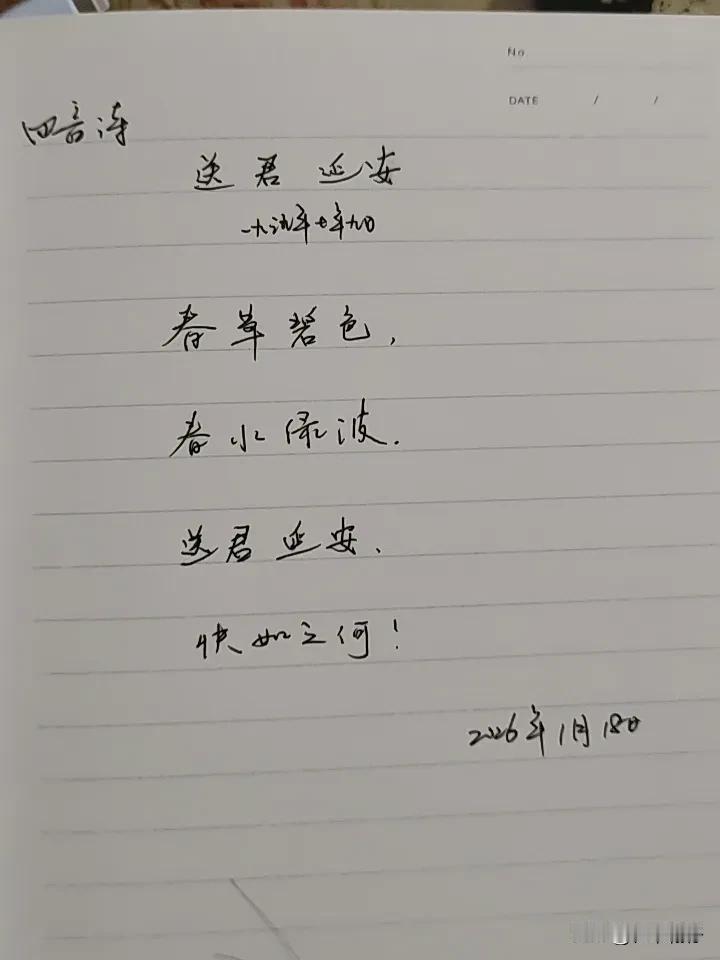 No
DATE / /
四言诗
送君延安
春草碧色,
春水绿波.
送君延安、
快如之何!
2026年1月18日